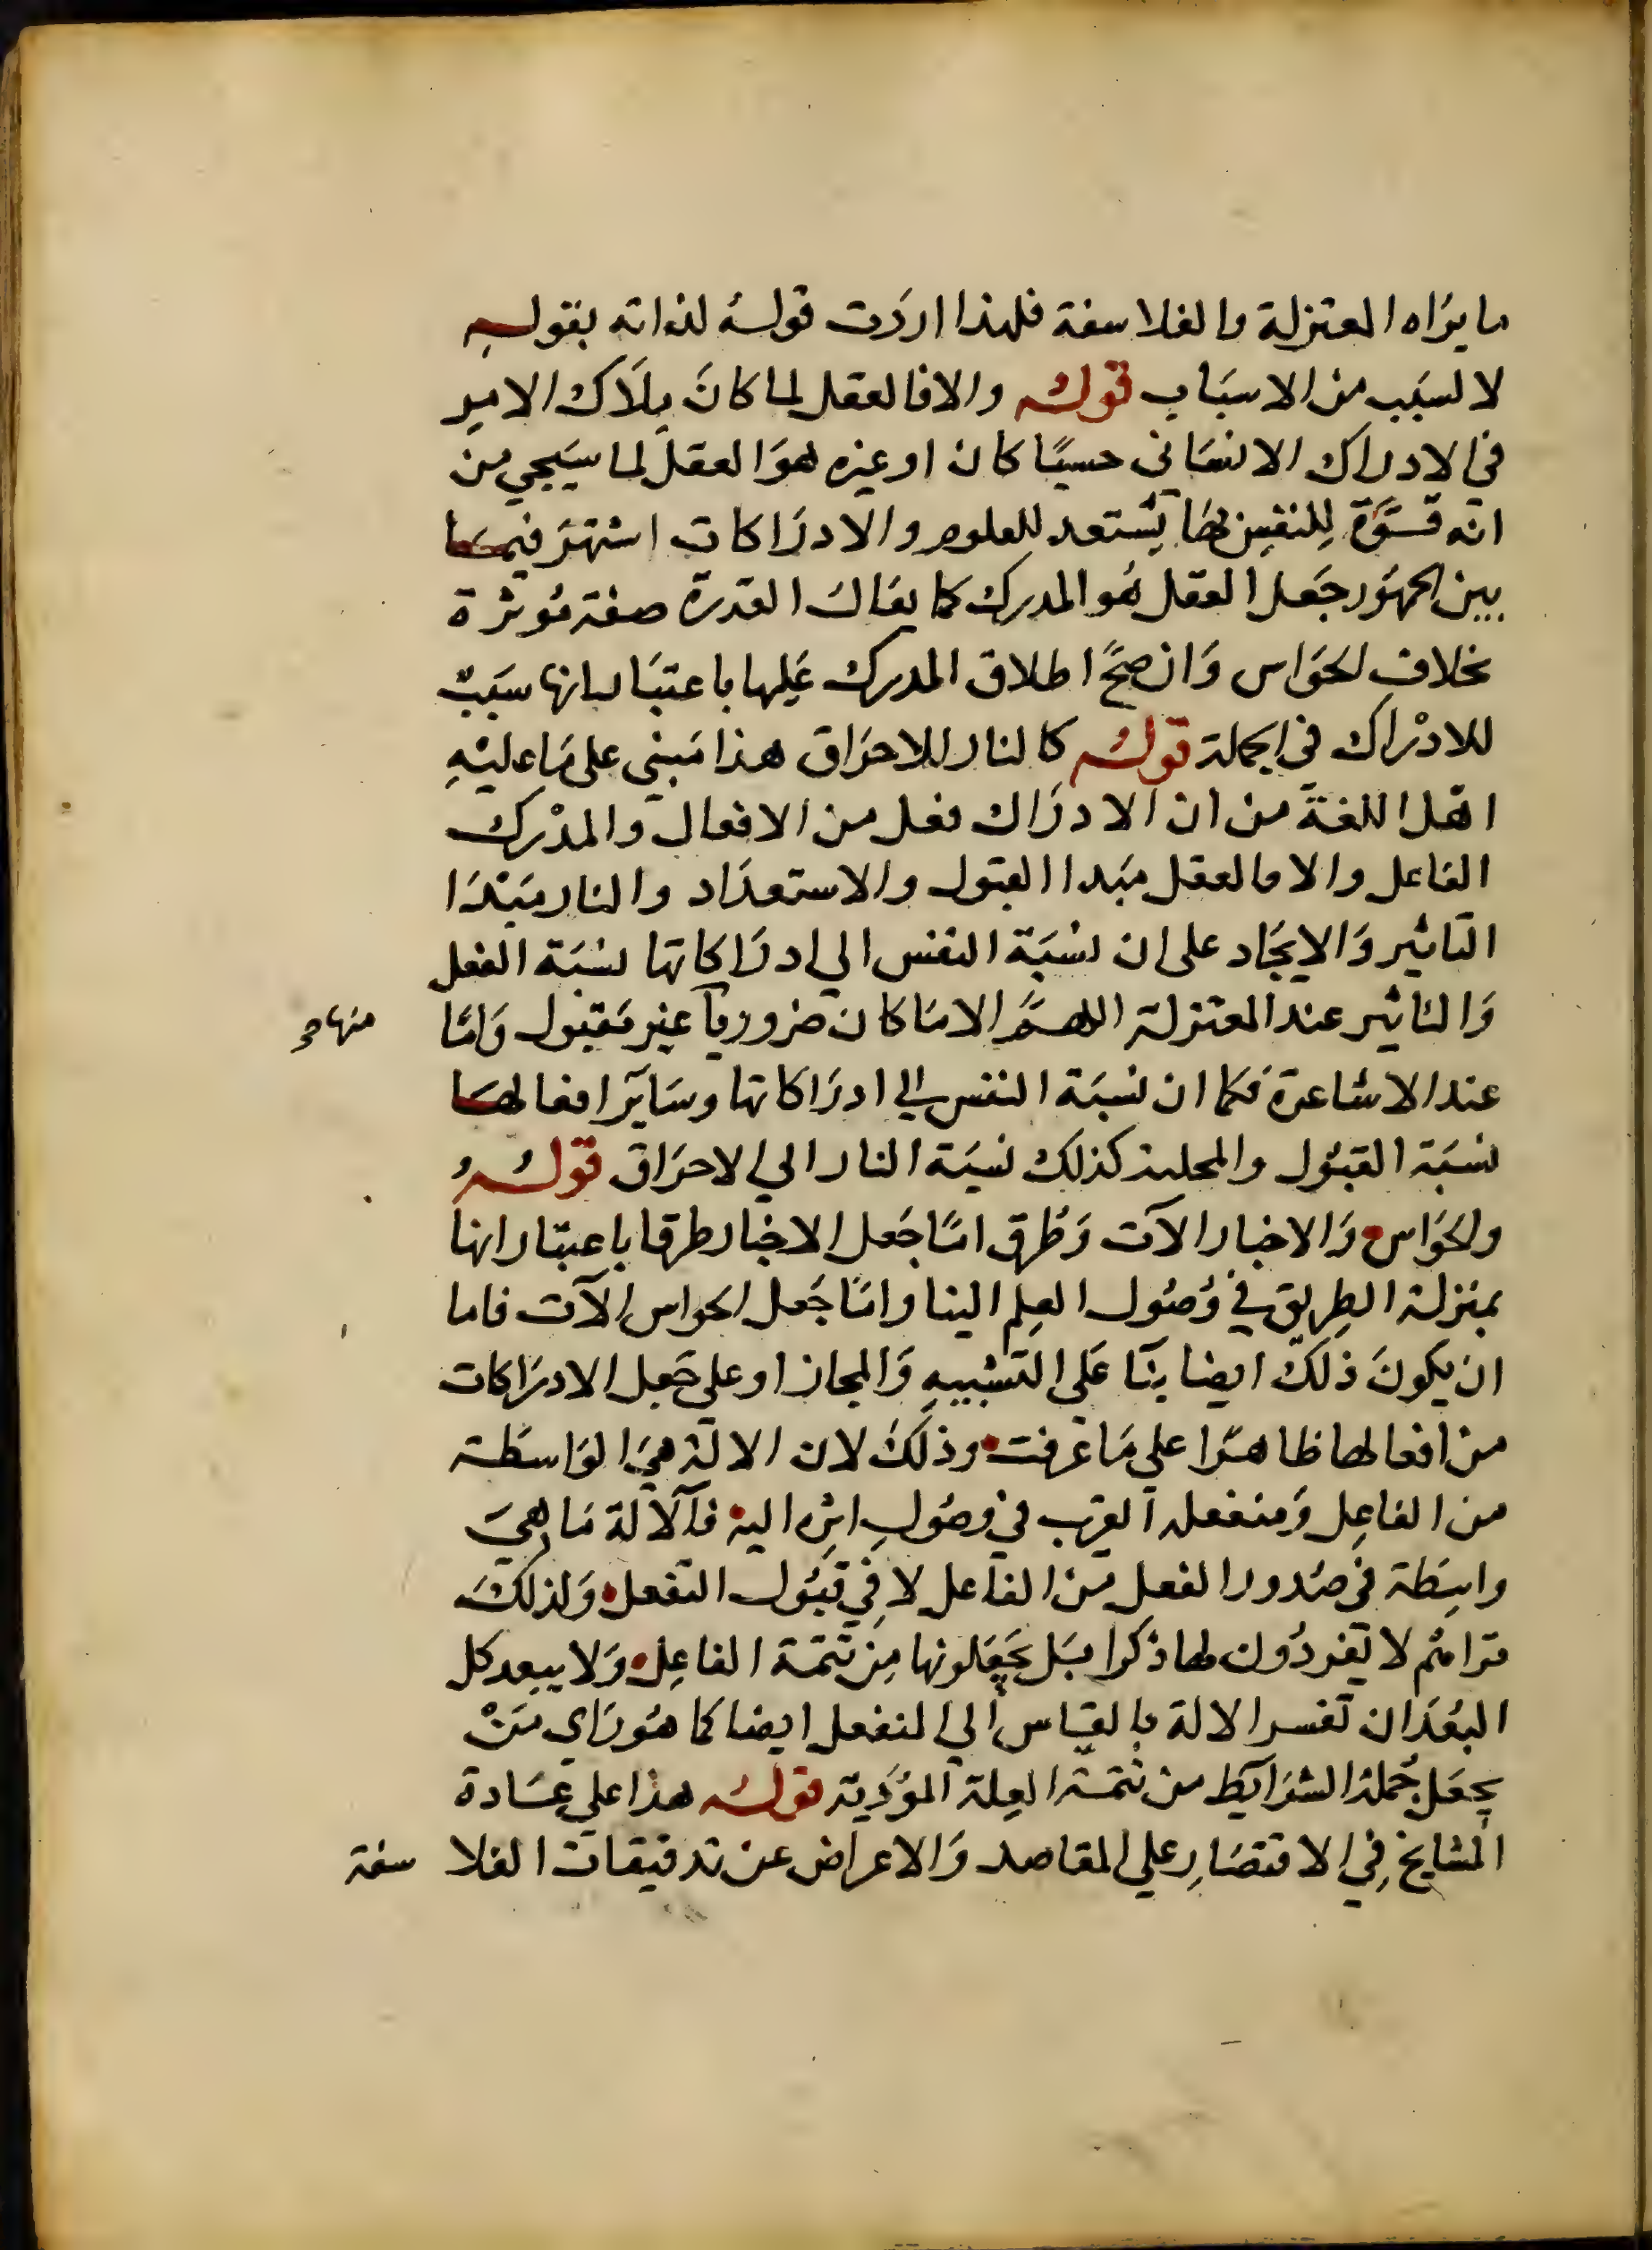 ما يرَاه المعتزلة والفلاسفة فلهذا اردَت قولهُ لذاته بقولهِ
لا لسبَب من الاسبَاب قولهُ والا فالعقل لما كانَ مِلَاك الامرِ
في الادراك الانسَاني حسيًا كان او غيره هوَ العقل لما سيَجي من
انه قوَّة لِلنفسِ بها تستعد للعلوم والادرَاكات اشتهَر فيمَا
بين الجمهُور جَعل العقل هُو المدرك كما يقال القدرة صفة مُوثرة
بخلاف الحوَاس وَان صحَّ اطلاق المدرك عَليها باعتبَار انها سبَبٌ
للادْرَاك في الجملة قولهُ كالنار للاحرَاق هذا مَبني على مَا عليْهِ
اهل اللغة من ان الادرَاك فعل من الافعال والمدْرك
الفاعل والا فالعقل مبَدا القبول والاستعدَاد والنار مبْدَا
التاثير وَالايجَاد على ان نسبَة النفس الي ادرَاكاتها نسبَة الفعل
وَالتاثير عند المعتزلة اللهمَّ الا مَا كان ضروريا غير مَقبول وَامَّا
منها
عند الاشاعرة فكما ان نسبَة النفس الي ادرَاكاتها وسَاير افعالهَا
نسبَة القبُول والمحلية كذلك نسبَة النار الي الاحرَاق قولهُ
والحوَاس وَالاخبار الآت وَطُرق امَّا جَعل الاخبار طرقا باعتبَار انها
بمنزلة الطرِيق في وُصُول العِلم الينا وامَّا جَعل الحواس الآت فاما
ان يكونَ ذلك ايضا بنَا عَلى التشبيهِ وَالمجاز او على جَعل الادرَاكات
من افعالها ظاهرًا علي مَا عَرفت وذلك لان الالة هي الوَاسطة
من الفاعِل وَمنفعله القرب في وصُولِ اثرِه اليه فالآلة مَا هيَ
واسِطَة في صُدور الفعل من الفاعل لا فِي قبُول التفعل وَلذلكَ
تراهُم لا يفردُون لها ذكرا بَل يجعَلونها مِن تتمَة الفاعِل وَلا يبعد كل
البعُدَ ان تفسر الالة بالقياس الي المنفعل ايضا كما هُو رَاي مَنْ
يجعَل جُملة الشرَايط من تتمَة العِلة المؤدية قولهُ هذا علي عَادة
المشايخ فِي الاقتصَارِ علي المقاصد وَالاعراض عن تدقيقات الفلا سفة